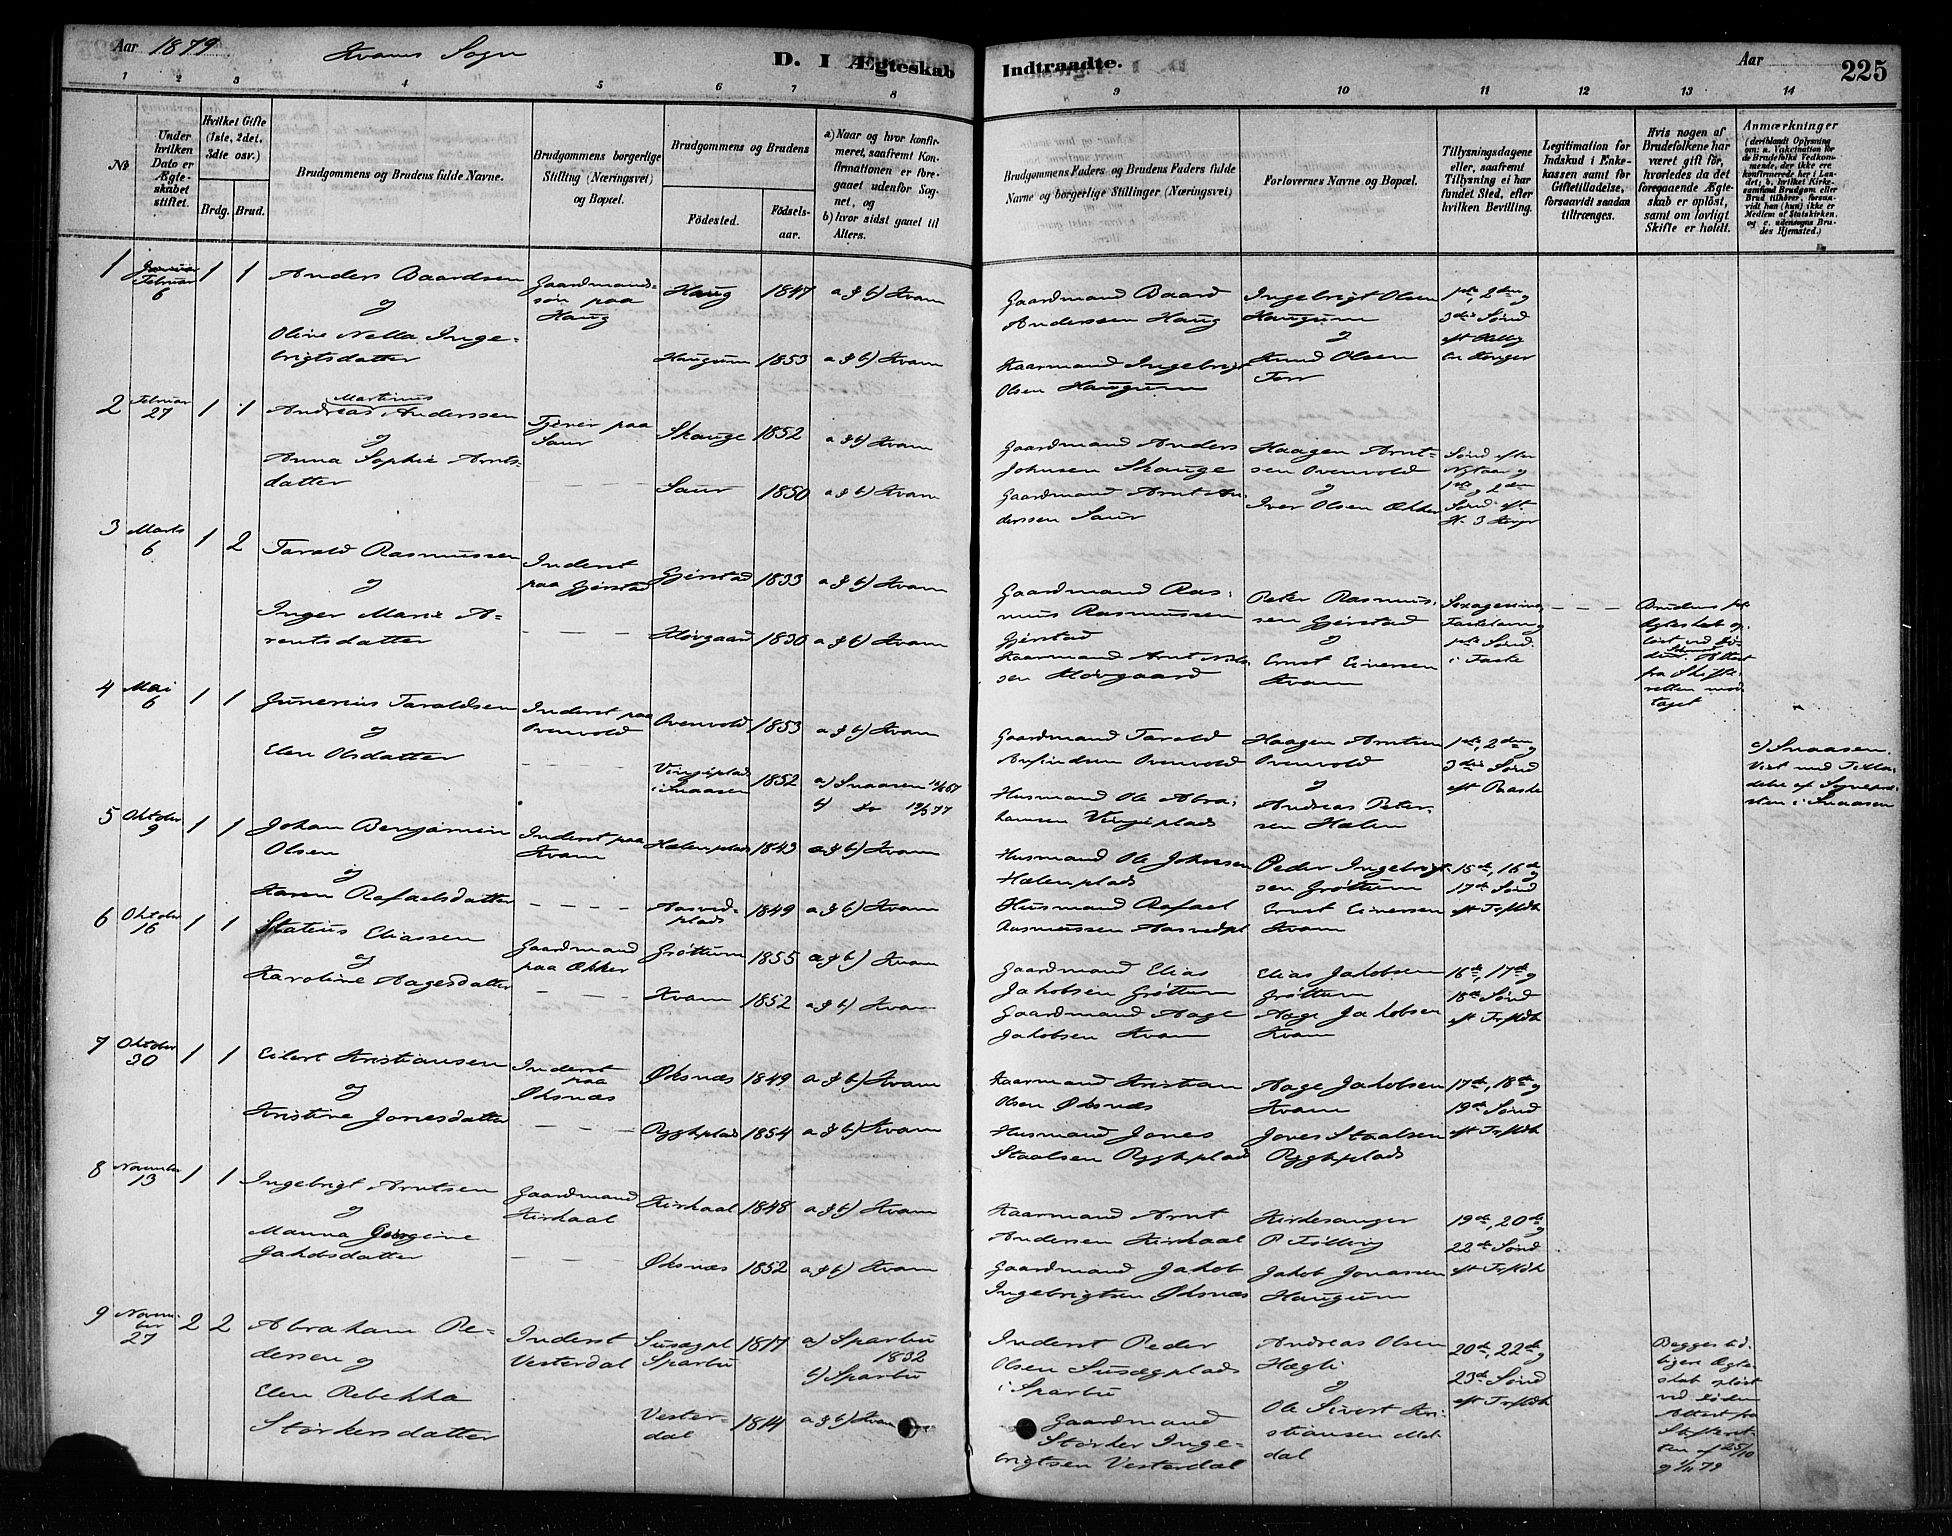 Aar 1879
Kvams Sogn
D. I Ægteskab Indtraadte.
Aar
225
1 2 3 4 5 6 7 8 9 10 11 12 13 14
№
Under hvilken Dato er Ægteskabet stiftet.
Hvilket Gifte (1ste, 2det, 3die osv.)
Brdg. Brud.
Brudgommens og Brudens fulde Navne.
Brudgommens borgerlige Stilling (Næringsvei) og Bopæl.
Brudgommens og Brudens
Fødested.
Fødselsaar.
a) Naar og hvor konfirmeret, saafremt Konfirmationen er foregaaet udenfor Sognet, og
b) hvor sidst gaaet til Alters.
Brudgommens Faders og Brudens Faders fulde Navne og borgerlige Stillinger (Næringsvei)
Forlovernes Navne og Bopæl.
Tillysningsdagene eller, saafremt Tillysning ei har fundet Sted, efter hvilken Bevilling.
Legitimation for Indskud i Enkekassen samt for Giftetilladelse, forsaavidt saadan tiltrænges.
Hvis nogen af Brudefolkene har været gift før, hvorledes da det foregaaende Ægteskab er opløst, samt om lovligt Skifte er holdt.
Anmærkninger
(deriblandt Oplysning om: a. Vakcination for de Brudefolks Vedkommende, der ikke ere konfirmerede her i Landet; b. hvilket Kirkesamfund Brudgom eller Brud tilhører, forsaavidt han (hun) ikke er Medlem af Statskirken, og c. udensogns Brudes Hjemsted.)
1 Februar 6 1 1 Anders Baardsen
og
Oline Nella Ingebrigtsdatter
Gaardmandsøn paa Haug
Haug 1847 a & b) Kvam
Haugum 1853 a & b) Kvam
Gaardmand Baard Anderssen Haug
Kaarmand Ingebrigt Olsen Haugum
Ingebrigt Olsen Haugum
og
Knud Olsen
1ste, 2den og 3die Sønd eft Hellig tre Konger
2 Februar 27 1 1 Andreas Martinus Anderssen
og
Anna Sophie Arntsdatter
Tjener paa Saur
Skauge 1852 a & b) Kvam
Saur 1850 a & b) Kvam
Gaardmand Anders Johnsen Skauge
Gaardmand Arnt Anderssen Saur
Haagen Arntsen Ovenvold
og
Iver Olsen Ækker
Sønd efter Nytaar og 1ste og 2den Sønd eft. H. 3 Konger
3 Marts 6 1 2 Tarald Rasmussen
og
Inger Marie Arentsdatter
Inderst paa Gjerstad
Gjerstad 1833 a & b) Kvam
Hovgaard 1830 a & b) Kvam
Gaardmand Rasmus Rasmussen Gjerstad
Kaarmand Arnt Nilssen Hovgaard
Peter Rasmussen Gjerstad
og
Ernst Einersen Kvam
Sexagesima, Fastelavn og 1ste Sønd. i Faste
Brudens første Ægteskab opløst ved Døden. Attest fra Skifteretten modtaget
4 Mai 6 1 1 Junerius Taraldsen
og
Elen Olsdatter
Inderst paa Ovenvold
Ovenvold 1853 a & b) Kvam
Vinjeplads i Snaasen 1852 a) Snaasen
b) do
Gaardmand Tarald Arfindsen Ovenvold
Husmand Ole Abrahamsen Vinjeplads
Haagen Arntsen Ovenvold
og
Andreas Petersen Hælen
1ste, 2den og 3die Sønd eft Paaske
c) Snaasen. Viet med Tilladelse af Sognepresten i Snaasen
5 Oktober 9 1 1 Johan Benjamin Olsen
og
Karen Rafaelsdatter
Inderst paa Kvam
Hælenplads 1843 a & b) Kvam
Aasvedplads 1849 a & b) Kvam
Husmand Ole Johnsen Hælenplads
Husmand Rafael Rasmussen Aasvedpl
Peder Ingebrigtsen Grøttum
Ernst Einersen Kvam
15de, 16de og 17de Sønd eft Trefoldh
6 Oktober 16 1 1 Statius Eliassen
og
Karoline Aagesdatter
Gaardmand paa Ækker
Grøttum 1855 a & b) Kvam
Kvam 1852 a & b) Kvam
Gaardmand Elias Jakobsen Grøttum
Gaardmand Aage Jakobsen Kvam
Elias Jakobsen Grøttum
Aage Jakobsen Kvam
16de, 17de og 18de Sønd eft Trefoldh
7 Oktober 30 1 1 Eilert Kristiansen
og
Kristine Jonesdatter
Inderst paa Øksnæs
Øksnæs 1849 a & b) Kvam
Ryghplads 1854 a & b) Kvam
Kaarmand Kristian Olsen Øksnæs
Husmand Jones Staalsen Ryghplads
Aage Jakobsen Kvam
Jones Staalsen Ryghplads
17de, 18de og 19de Sønd eft Trefoldh
8 November 13 1 1 Ingebrigt Arntsen
og
Manna Georgine Jakobsdatter
Gaardmand Kirkaal
Kirkaal 1848 a & b) Kvam
Øksnæs 1852 a & b) Kvam
Kaarmand Arnt Andersen Kirkaal
Gaardmand Jakob Ingebrigtsen Øksnæs
Kirkesanger P Følling
Jakob Jonassen Haugum
19de, 20de og 22de Sønd eft Trefoldh
9 November 27 2 2 Abraham Pedersen og
Elen Rebekka Størkersdatter
Inderst Vesterdal
Susægpl Sparbu 1817 a) Sparbu 1832
b) Sparbu
Vesterdal 1814 a & b) Kvam
Inderst Peder Olsen Susægplads i Sparbu
Gaardmand Størker Ingebrigtsen Vesterdal
Andreas Olsen Hægli
og
Ole Sivert Kristiansen Meldal
20de, 22de og 23de Sønd eft Trefoldh
Begges tidligere Ægteskab opløst ved Døden Attest fra Skifteretten af 25/10 og 1/11 79